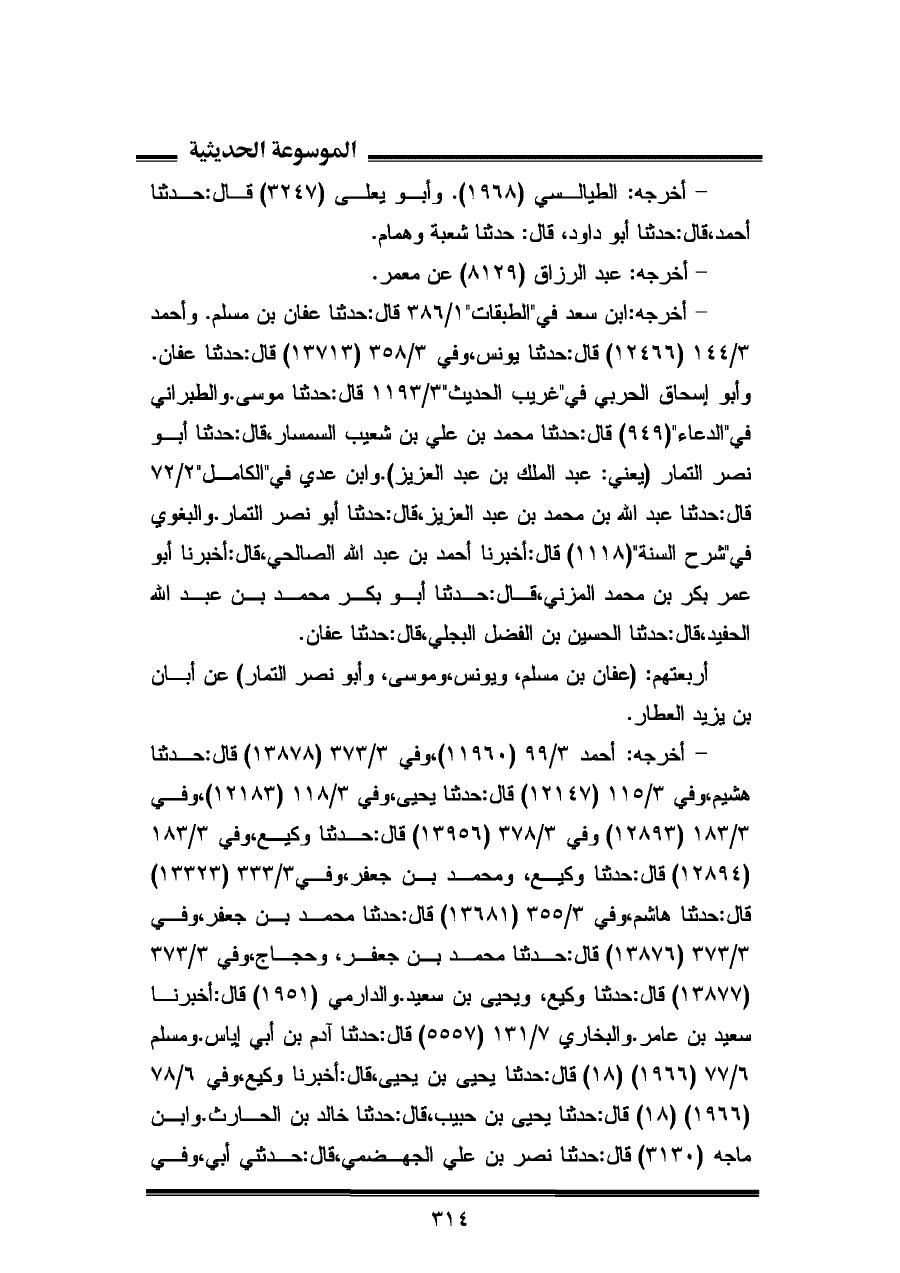 الموسوعة الحديثية
– أخرجه: الطيالسي (١٩٦٨). وأبو يعلى (٣٢٤٧) قال:حدثنا
أحمد،قال:حدثنا أبو داود، قال: حدثنا شعبة وهمام.
– أخرجه: عبد الرزاق (٨١٢٩) عن معمر.
– أخرجه:ابن سعد في"الطبقات"٣٨٦/١ قال:حدثنا عفان بن مسلم. وأحمد
١٤٤/٣ (١٢٤٦٦) قال:حدثنا يونس،وفي ٣٥٨/٣ (١٣٧١٣) قال:حدثنا عفان.
وأبو إسحاق الحربي في"غريب الحديث"١١٩٣/٣ قال:حدثنا موسى.والطبراني
في"الدعاء"(٩٤٩) قال:حدثنا محمد بن علي بن شعيب السمسار،قال:حدثنا أبو
نصر التمار (يعني: عبد الملك بن عبد العزيز).وابن عدي في"الكامل"٧٢/٢
قال:حدثنا عبد الله بن محمد بن عبد العزيز،قال:حدثنا أبو نصر التمار.والبغوي
في"شرح السنة"(١١١٨) قال:أخبرنا أحمد بن عبد الله الصالحي،قال:أخبرنا أبو
عمر بكر بن محمد المزني،قال:حدثنا أبو بكر محمد بن عبد الله
الحفيد،قال:حدثنا الحسين بن الفضل البجلي،قال:حدثنا عفان.
أربعتهم: (عفان بن مسلم، ويونس،وموسى، وأبو نصر التمار) عن أبان
بن يزيد العطار.
– أخرجه: أحمد ٩٩/٣ (١١٩٦٠)،وفي ٣٧٣/٣ (١٣٨٧٨) قال:حدثنا
هشيم،وفي ١١٥/٣ (١٢١٤٧) قال:حدثنا يحيى،وفي ١١٨/٣ (١٢١٨٣)،وفي
١٨٣/٣ (١٢٨٩٣) وفي ٣٧٨/٣ (١٣٩٥٦) قال:حدثنا وكيع،وفي ١٨٣/٣
(١٢٨٩٤) قال:حدثنا وكيع، ومحمد بن جعفر،وفي٣٣٣/٣ (١٣٣٢٣)
قال:حدثنا هاشم،وفي ٣٥٥/٣ (١٣٦٨١) قال:حدثنا محمد بن جعفر،وفي
٣٧٣/٣ (١٣٨٧٦) قال:حدثنا محمد بن جعفر، وحجاج،وفي ٣٧٣/٣
(١٣٨٧٧) قال:حدثنا وكيع، ويحيى بن سعيد.والدارمي (١٩٥١) قال:أخبرنا
سعيد بن عامر.والبخاري ١٣١/٧ (٥٥٥٧) قال:حدثنا آدم بن أبي إياس.ومسلم
٧٧/٦ (١٩٦٦) (١٨) قال:حدثنا يحيى بن يحيى،قال:أخبرنا وكيع،وفي ٧٨/٦
(١٩٦٦) (١٨) قال:حدثنا يحيى بن حبيب،قال:حدثنا خالد بن الحارث.وابن
ماجه (٣١٣٠) قال:حدثنا نصر بن علي الجهضمي،قال:حدثتي أبي،وفي
٣١٤